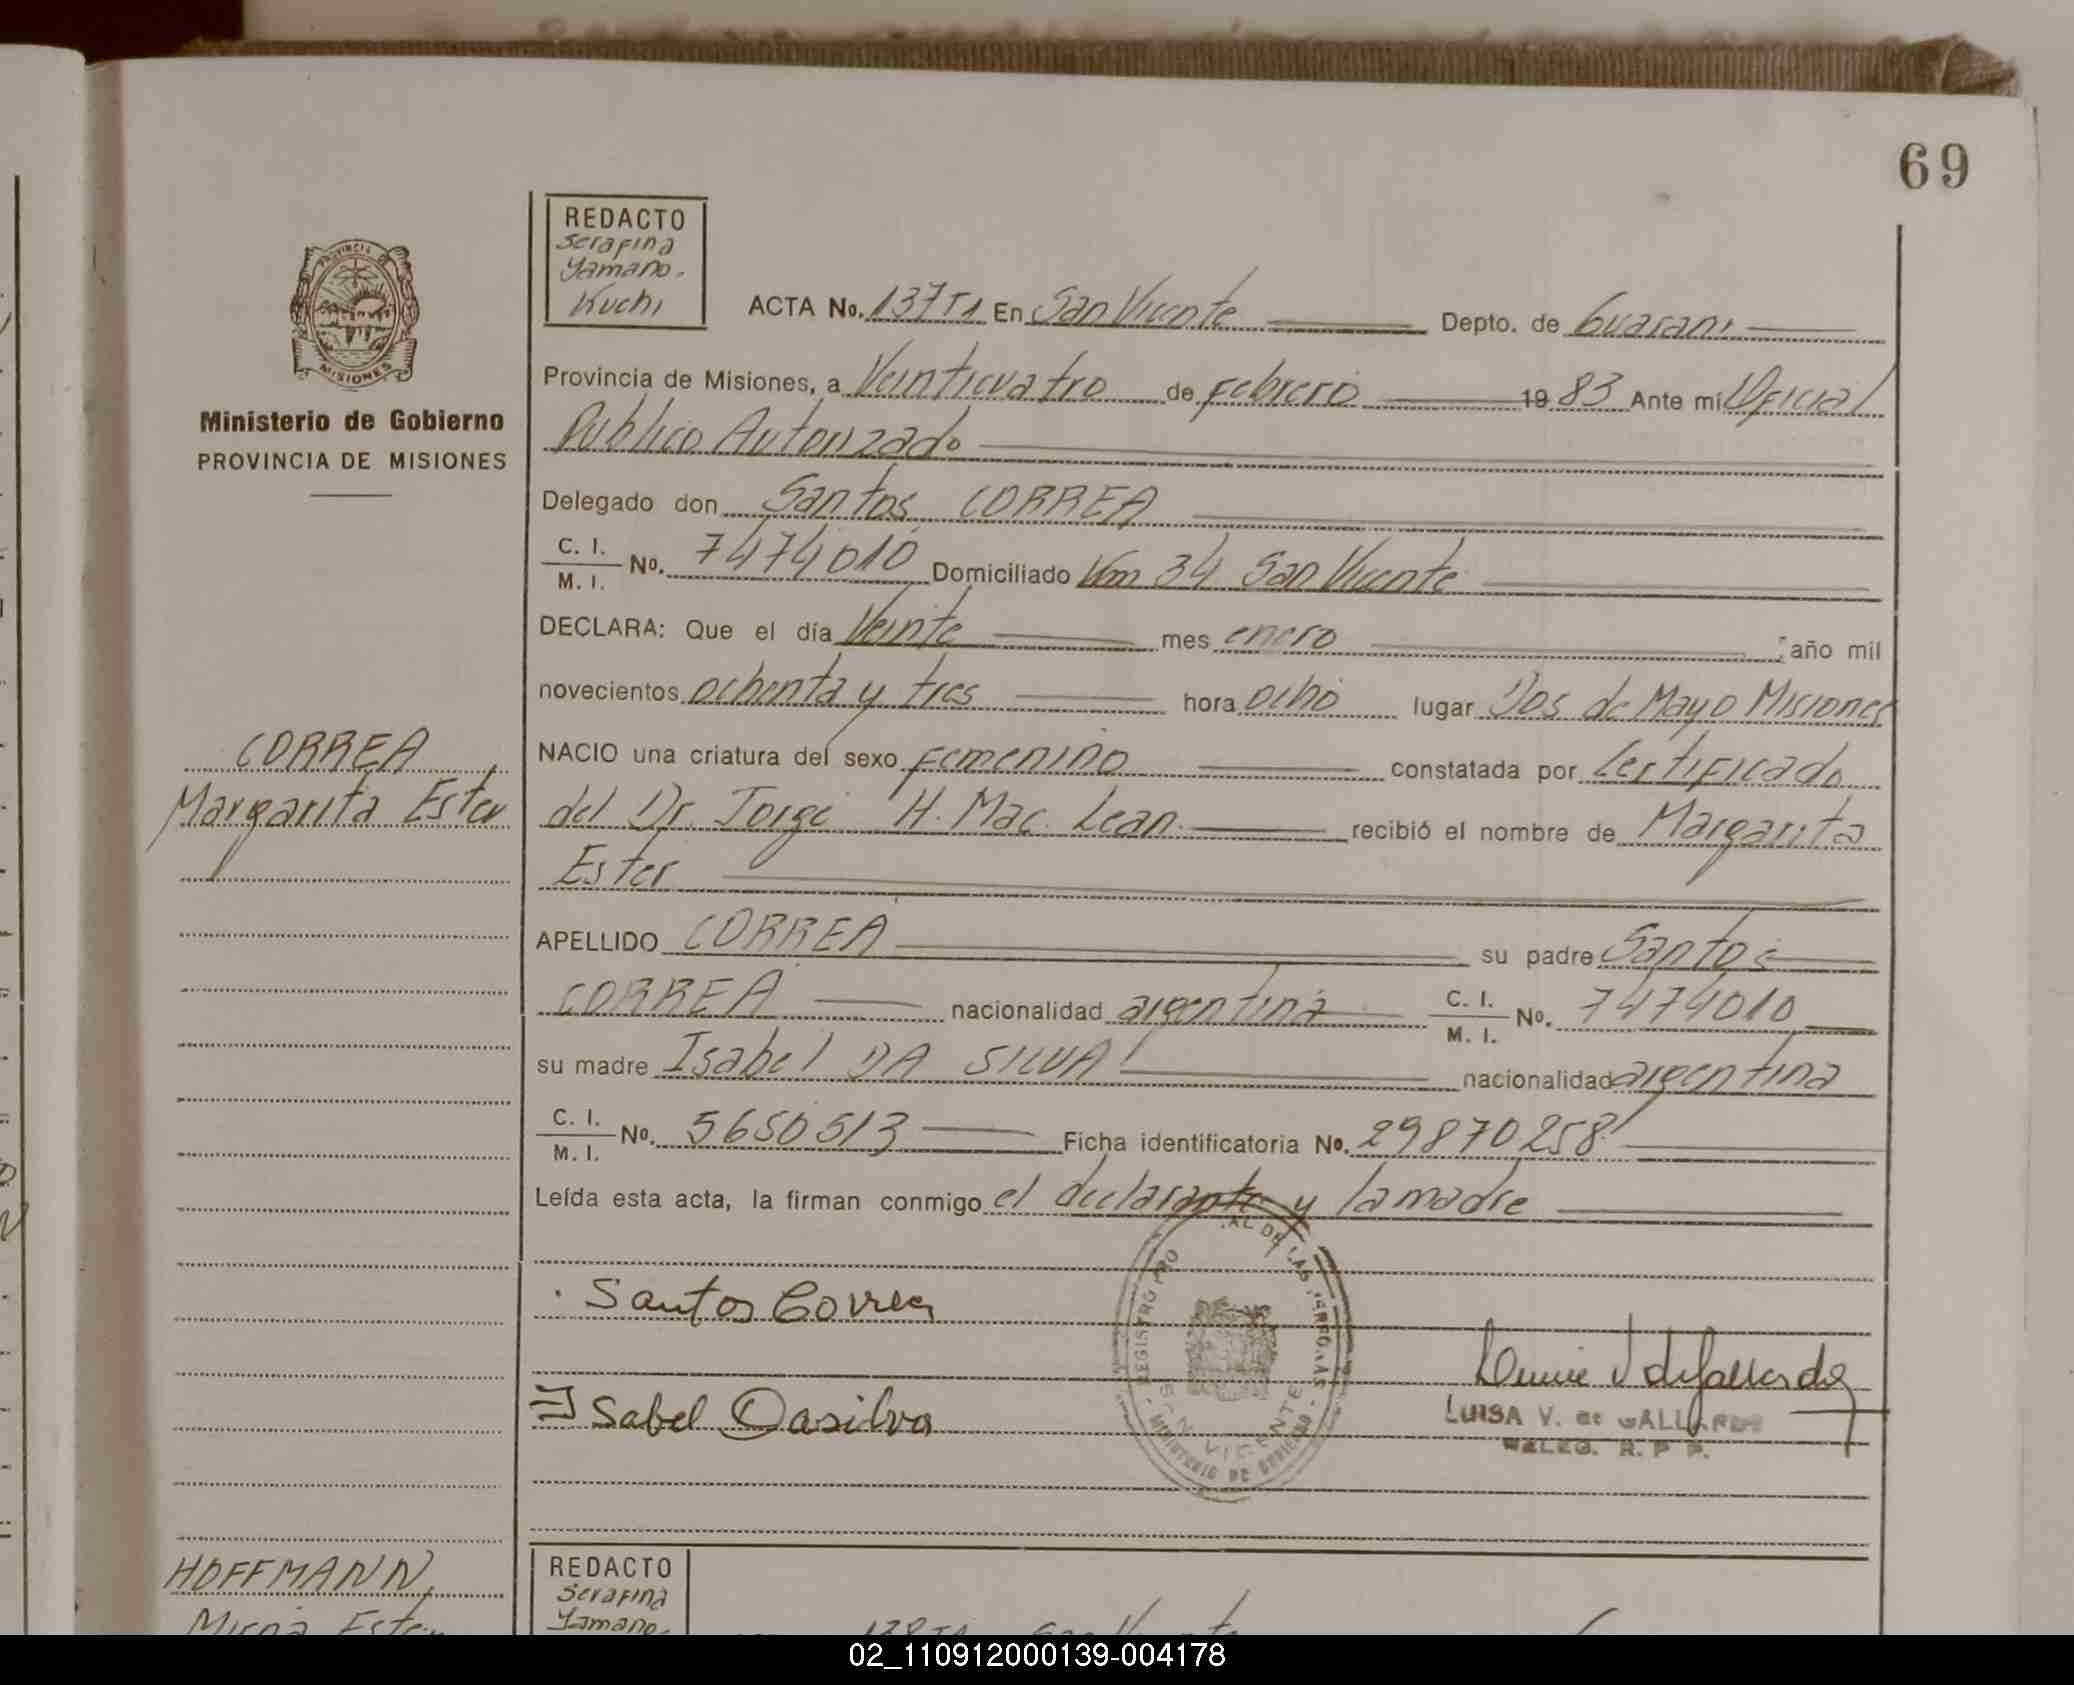 69
REDACTO
Serafina
Yamano.
Kuchi
PROVINCIA DE
MISIONES
Ministerio de Gobierno
PROVINCIA DE MISIONES
ACTA No. 137 T1 En San Vicente Depto. de Guarani
Provincia de Misiones, a Veinticuatro de Febrero 1983 Ante mi Oficial
Publico Autorizado
Delegado don Santos CORREA
C. I. / M. I. No. 7474010 Domiciliado Km 34 San Vicente
DECLARA: Que el día Veinte mes enero año mil
novecientos ochenta y tres hora ocho lugar Dos de Mayo Misiones
NACIO una criatura del sexo Femenino constatada por Certificado
del Dr. Jorge H. Mac Lean recibió el nombre de Margarita
Ester
APELLIDO CORREA su padre Santos
CORREA nacionalidad argentina C. I. / M. I. No. 7474010
su madre Isabel DA SILVA nacionalidad argentina
C. I. / M. I. No. 5650513 Ficha identificatoria No. 29870258
Leída esta acta, la firman conmigo el declarante y la madre
CORREA
Margarita Ester
Santos Correa
Isabel Dasilva
REGISTRO PRO AL DE LAS PERSONAS
SAN VICENTE
MINISTERIO DE GOBIERNO
LUISA V. de GALLARDO
DELEG. R. P P.
HOFFMANN,
Mirna Ester
REDACTO
Serafina
Yamano.
138 T1 San Vicente
02_110912000139-004178